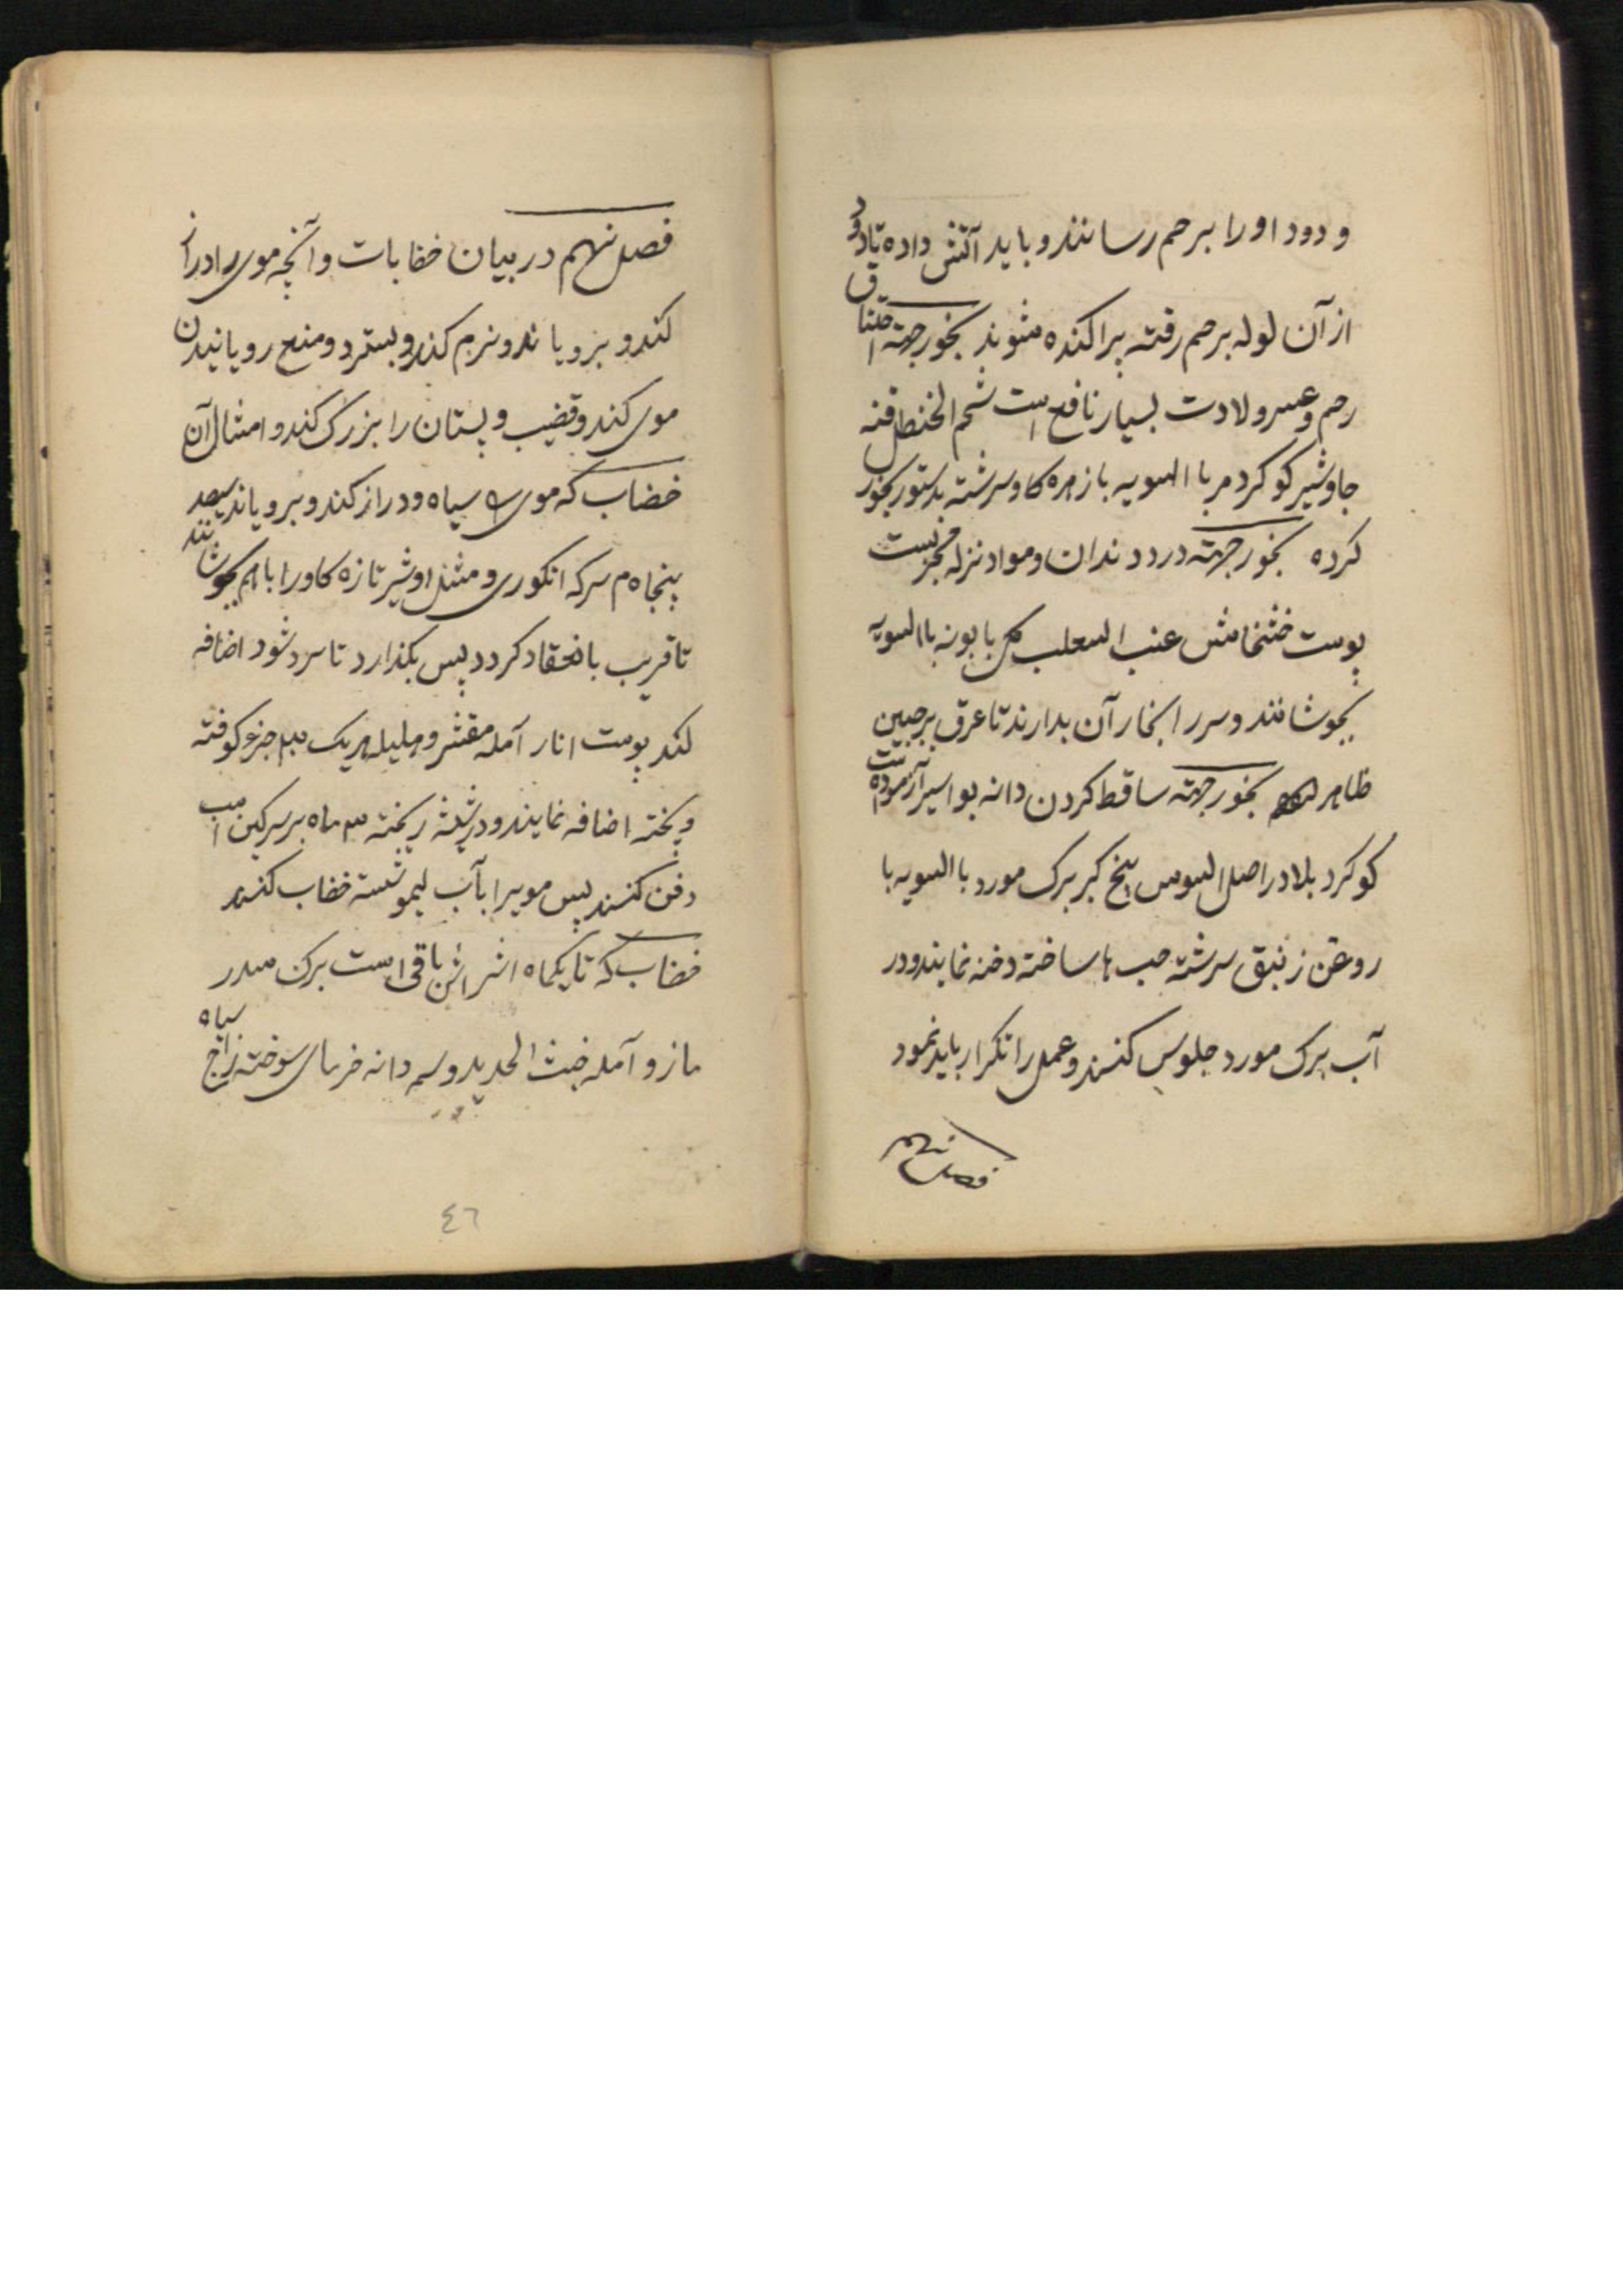 و دود او را برحم رسانند و باید آتش داده تا دود
از آن لوله برحم رفته پراکنده شوند بخور جهته اختناق
رحم و عسر ولادت بسیار نافع است شحم الحنظل قنه
جاوشیر کوکرد مر با السویه با زهره کاو سرشته بدستور بخور
کرده بخور جهته درد دندان و مواد نزله مجربست
پوست خشخاش عنب الثعلب کل بابونه با السویه
بجوشانند و سر را ببخار آن بدارند تا عرق بر جبین
ظاهر بخور جهته ساقط کردن دانه بواسیر آزموده است
کوکرد بلادر اصل السوس بیخ کبر برک مورد با السویه با
روغن زنبق سرشته حب ها ساخته دخنه نمایند و در
آب برک مورد جلوس کنند و عمل را تکرار باید نمود
فصل نهم
فصل نهم در بیان خضابات و آنچه موی را دراز
کند و برویاند و نرم کند و بسترد و منع رویانیدن
موی کند و قضیب و پستان را بزرک کند و امثال آن
خضاب که موی را سیاه و دراز کند و برویاند سیصد
پنجاه م سرکه انکوری و مثل او شیر تازه کاو را با هم بجوشانند
تا قریب بانعقاد کردد پس بکذارد تا سرد شود اضافه
کند پوست انار آمله مقشر و هلیله هر یک سه جزء کوفته
و بیخته اضافه نمایند و در شیشه ریخته سه ماه بر سرکین اسب
دفن کنند پس مویرا بآب لیمو شسته خضاب کنند
خضاب که تا یکماه اثرش باقی است برک سدر
مازو آمله خبث الحدید وسمه دانه خرمای سوخته زاج سیاه
٤٦